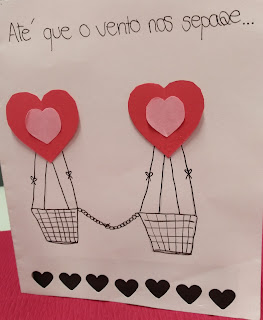 Até que o vento nos separe...